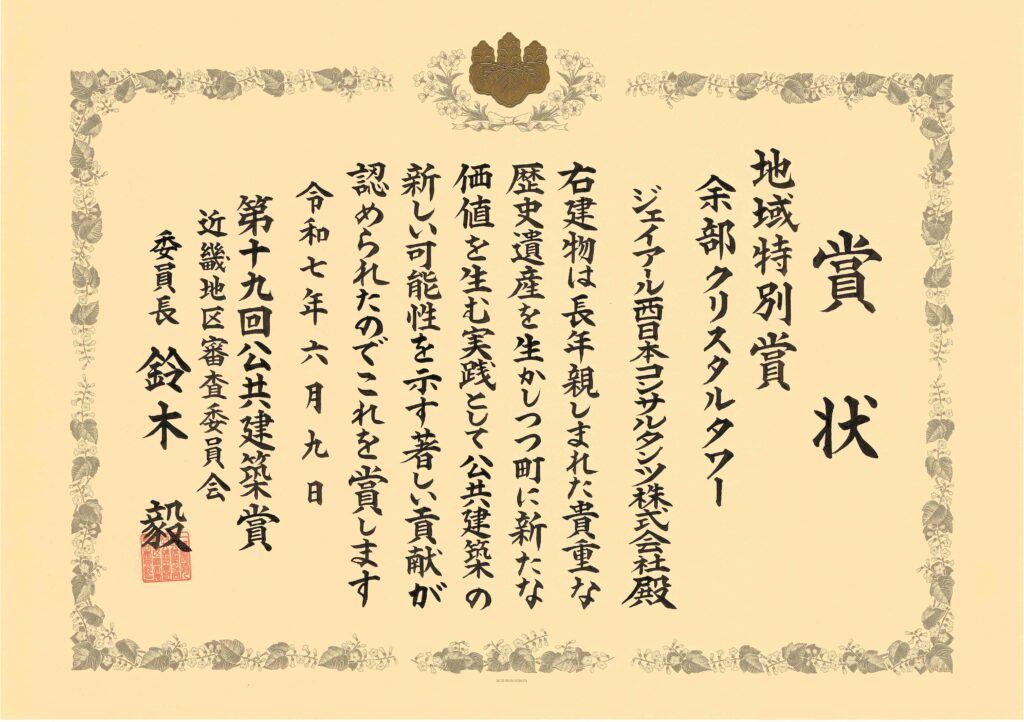 賞状
地域特別賞
余部クリスタルタワー
ジェイアール西日本コンサルタンツ株式会社殿
右建物は長年親しまれた貴重な
歴史遺産を生かしつつ町に新たな
価値を生む実践として公共建築の
新しい可能性を示す著しい貢献が
認められたのでこれを賞します
令和七年六月九日
第十九回公共建築賞
近畿地区審査委員会
委員長 鈴木毅